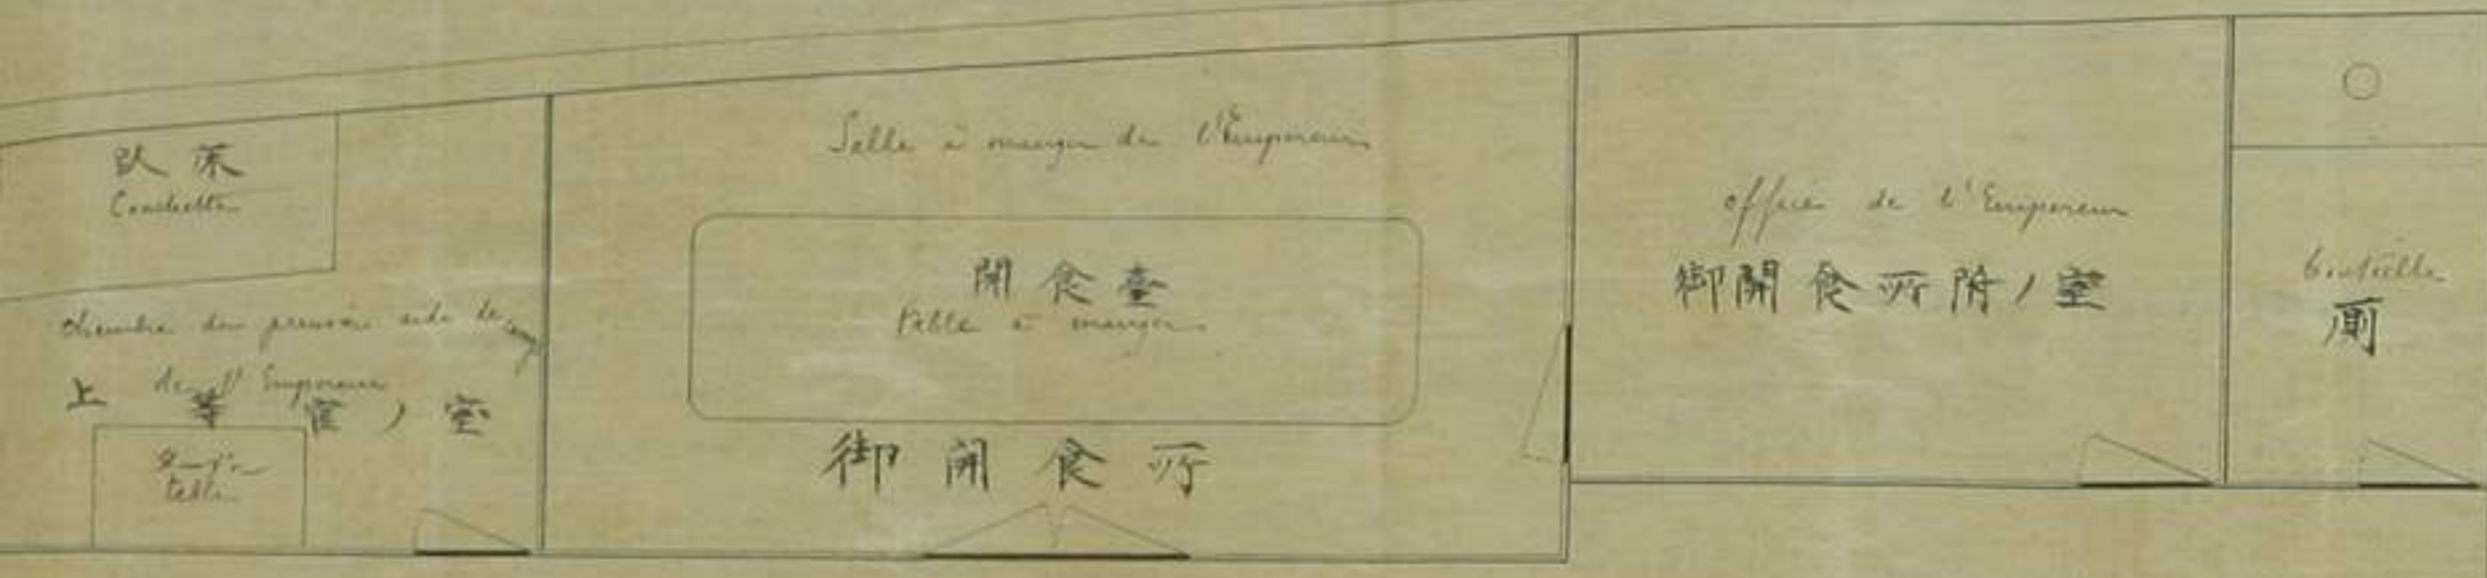 臥床
Couchette
chambre du premier aide de camp
de l'Empereur
上等官ノ室
テーブル
table
Salle à manger de l'Empereur
開食臺
table à manger
御開食所
office de l'Empereur
御開食所附ノ室
bouteille
厠